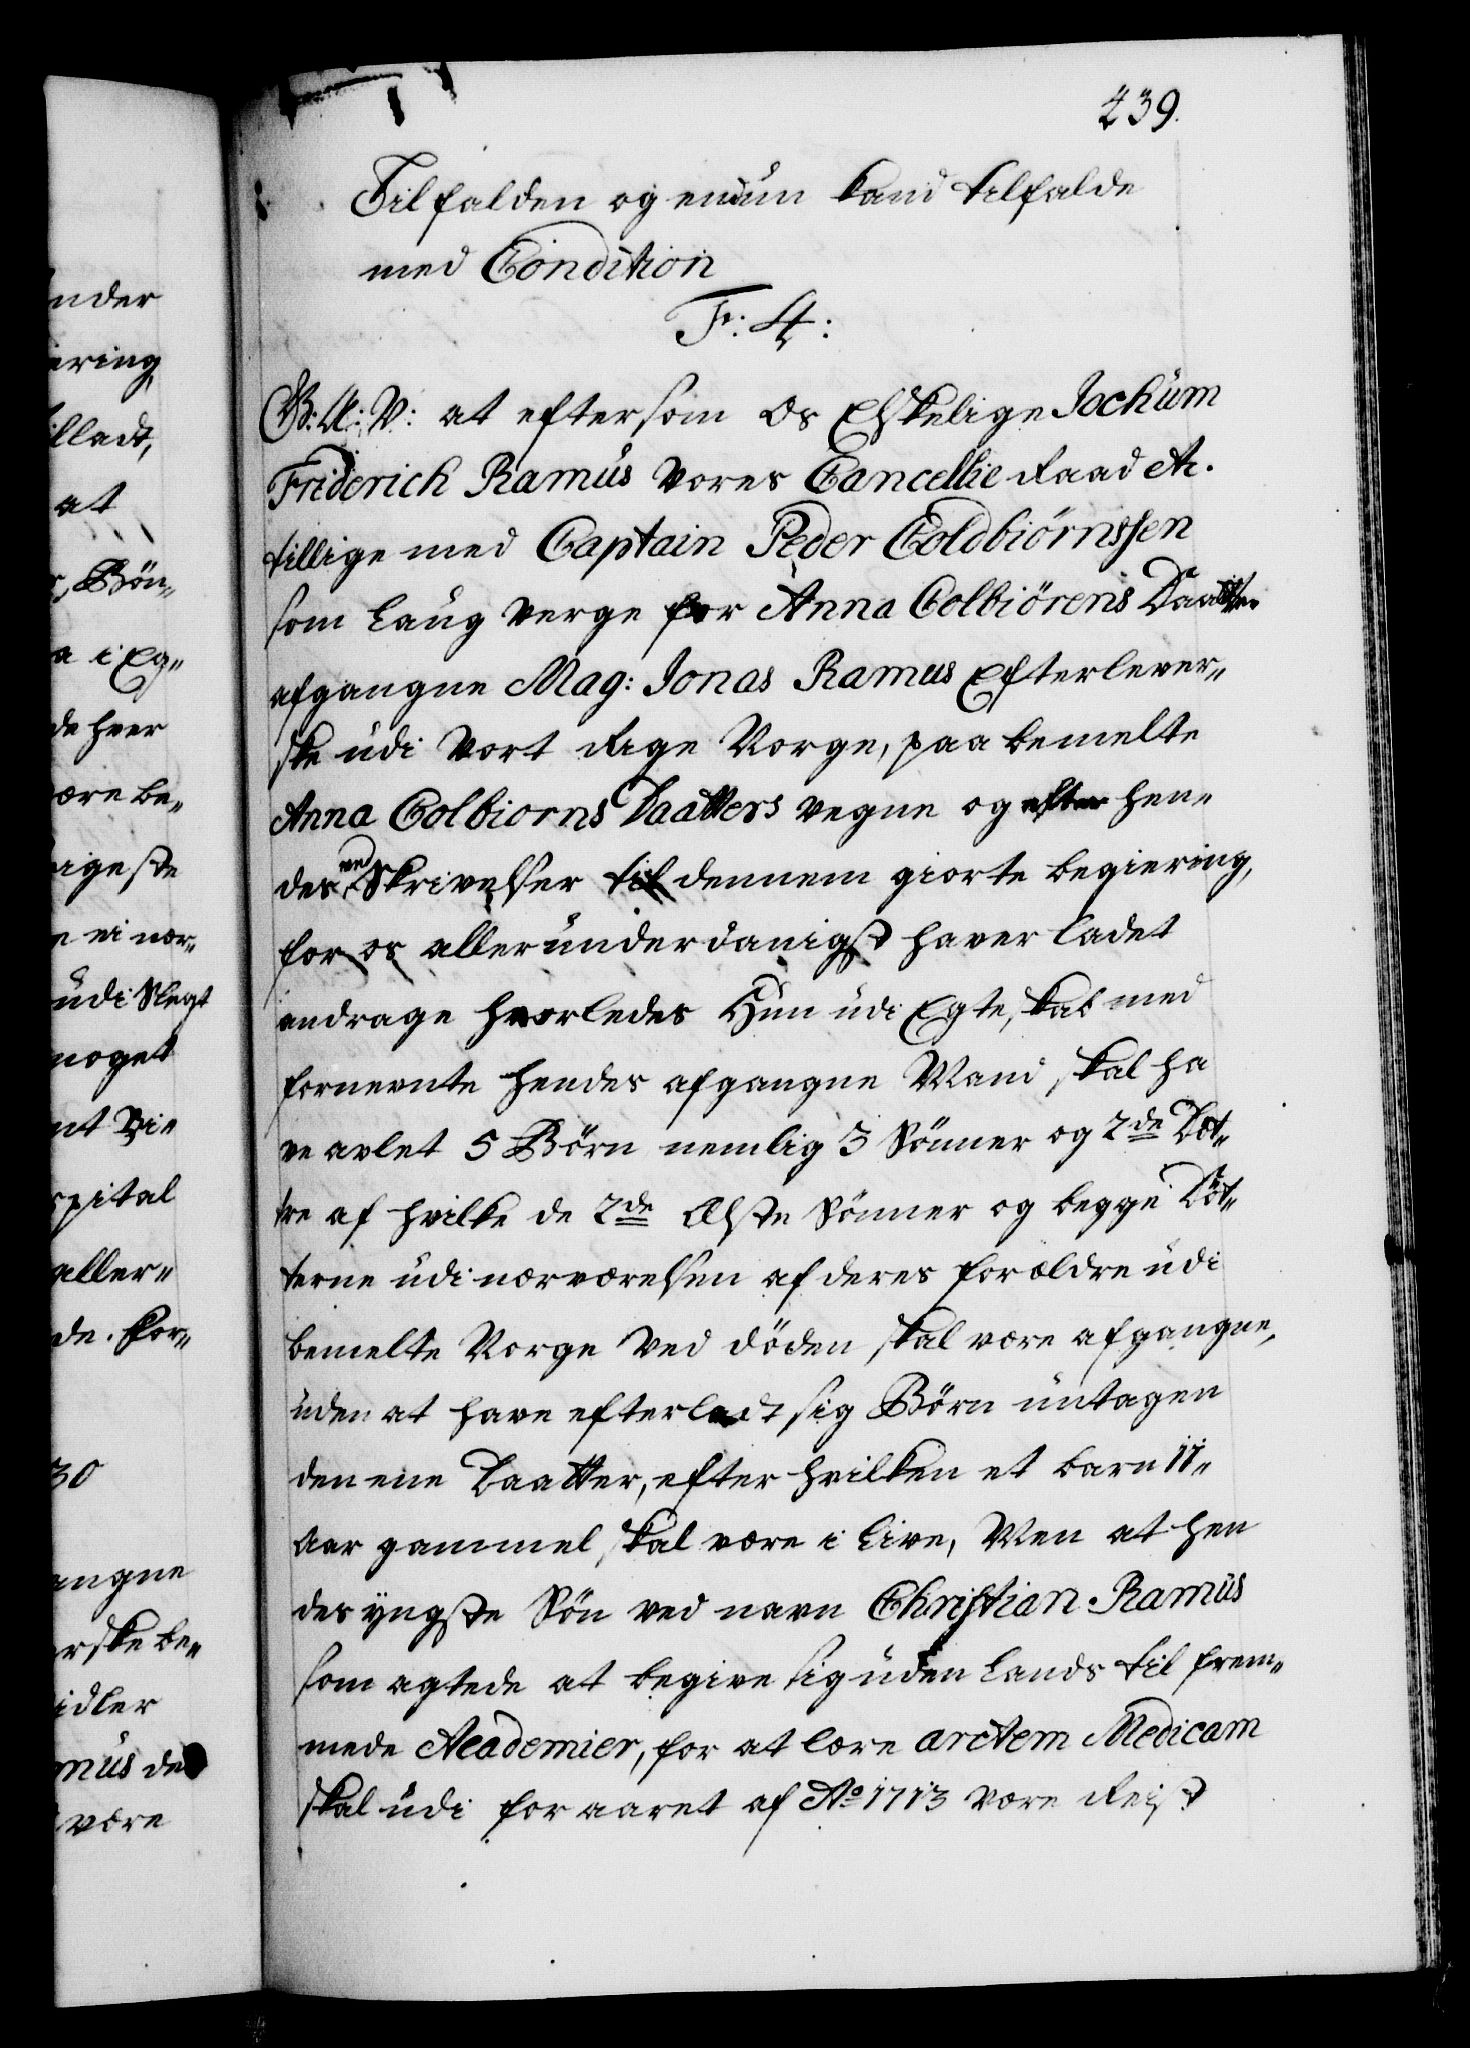 239.
Tilfalden og endnu kand tilfalde
med Condition
Fr: 4:
G: A: V: at eftersom os Elskelige Jochum
Friderich Ramus vores Cancellie Raad etc.
tillige med Captain Peder Coldbiørnssen
som laug verge for Anna Colbiørens Daatter
afgangne Mag: Jonas Ramus Efterlever-
ske udi vort Rige Norge, paa bemelte
Anna Colbiorns Daatters vegne og efter hen-
des ved Skrivelser til dennem giorte begiering,
for os allerunderdanigst haver ladet
andrage hvorledes Hun udi Egteskab med
fornevnte hendes afgangne Mand skal ha
ve avlet 5 Børn nemlig 3 Sønner og 2de Døt-
tre af hvilke de 2de Ælste Sønner og begge Døt-
terne udi nærværelsen af deres forældre udi
bemelte Norge ved døden skal være afgangne,
uden at have efterladt sig Børn untagen
den ene Daatter, efter hvilken et barn 11-
Aar gammel skal være i live, Men at hen
des yngste Søn ved navn Christian Ramus
som agtede at begive sig uden lands til frem-
mede Academier, for at lære arctem Medicam
skal udi foraaret af Ao 1713 være Reist
nder
ering,
illadt,
at
Bøn-
a i Eg-
de hver
være be-
rigeste
e ei nær-
udi Slegt
noget
nt Vi-
spital
aller-
de. for-
30
angne
erske be-
idler
mus de
være